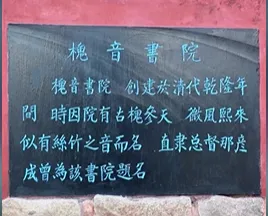 槐音書院
槐音書院 创建於清代乾隆年
間 時因院有古槐參天 微風熙來
似有絲竹之音而名 直隶总督那彦
成曾為該書院題名